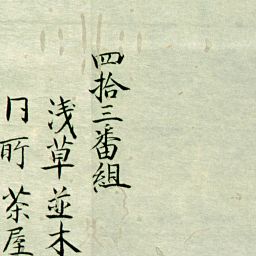 四拾三番組
浅草並木
同所 茶屋